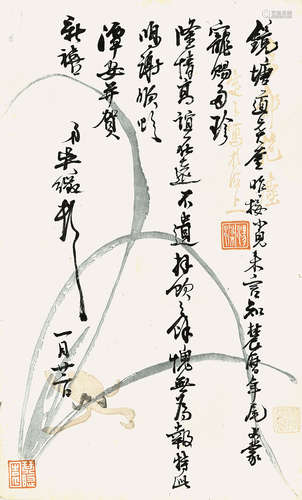 鏡塘道兄鑒昨接小兒來言知楚原年尾又蒙
寵賜多珍
隆情高誼在遠不遺拜領餘愧無為報特此
鳴謝順頌
潭安并賀
新禧
弟吳
一月廿二日